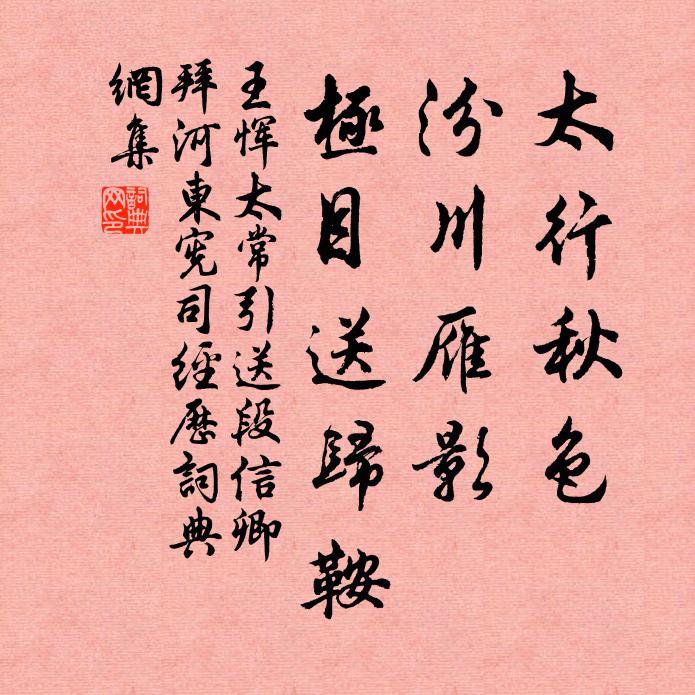 太行秋色
汾川雁影
極目送歸鞍
王惲太常引送段信卿
拜河東宪司經歷詞典
網集
詞典
网印